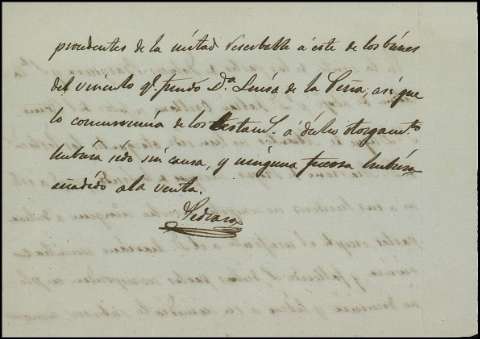 prendentes de la mitad reservable á este de los bienes
del vinculo qe. fundó Da. Luisa de la Peña, asi que
la concurrencia de los á dichos otorgamtos.
hubiera sido sin causa, y ninguna fuerza hubiera
añadido a la venta.
Pedrazo